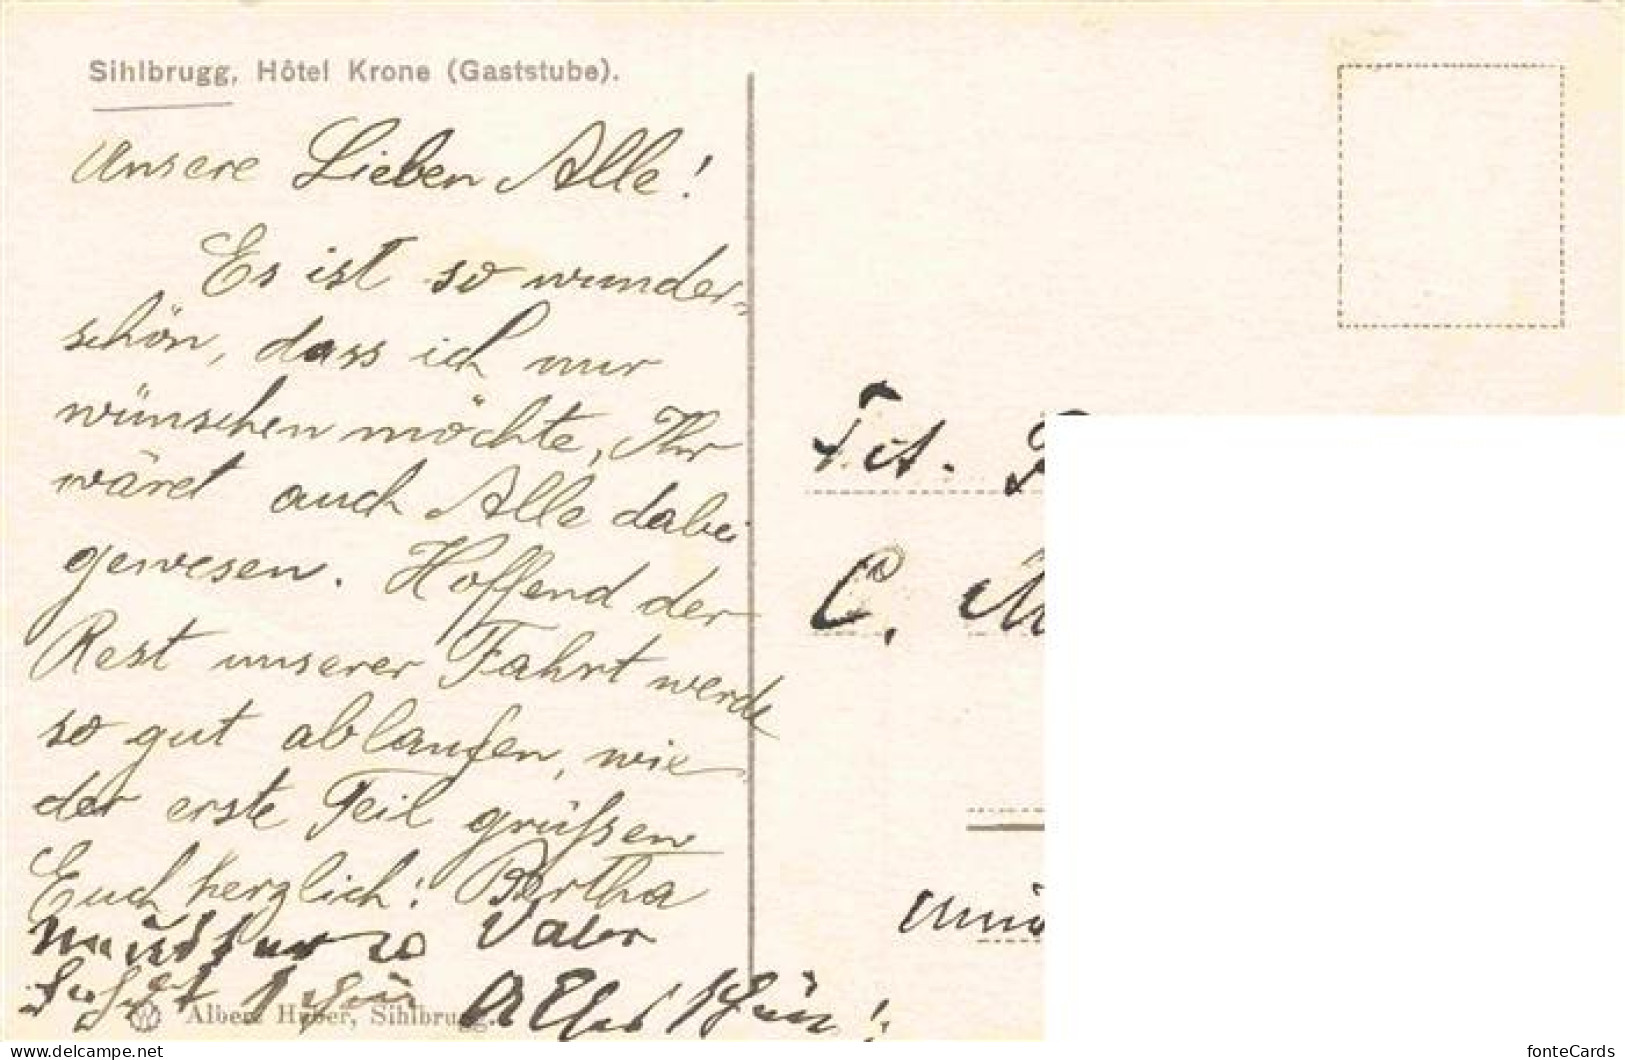 Sihlbrugg, Hôtel Krone (Gaststube).
Unsere Lieben Alle!
Es ist so wunder=
schön, dass ich nur
wünschen möchte, Ihr
wäret auch Alle dabei
gewesen. Hoffend der
Rest unserer Fahrt werde
so gut ablaufen, wie
der erste Teil grüßen
Euch herzlich! Bertha
Vater
Albert Huber, Sihlbrugg.
Tit.
C.
fonteCards >> delcampe.net